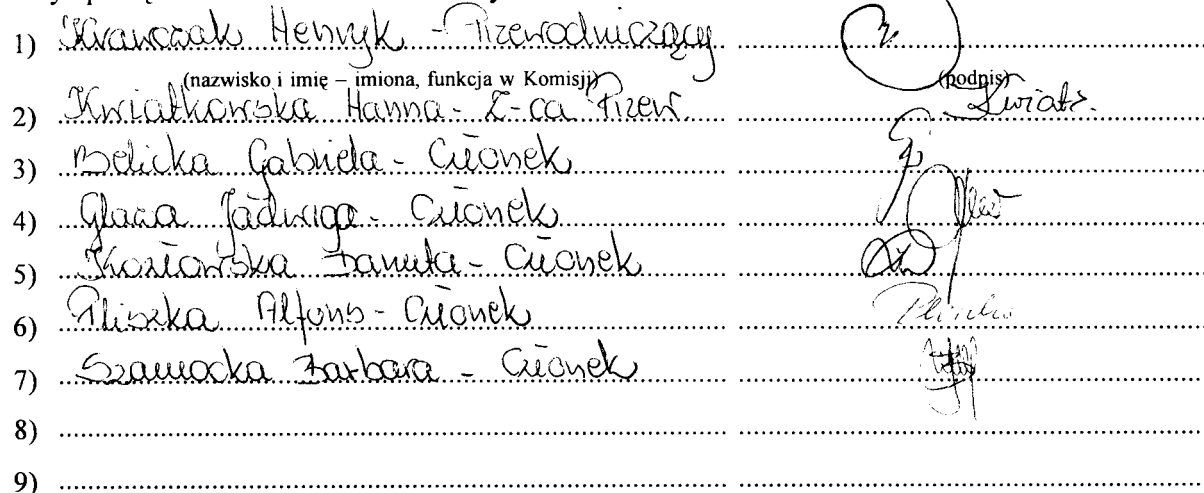 1) Krawczak Henryk - Przewodniczący
(nazwisko i imię – imiona, funkcja w Komisji) (podpis)
2) Kwiatkowska Hanna - Z-ca Przew. Kwiatk.
3) Belicka Gabriela - Członek
4) Glaza Jadwiga - Członek
5) Kozłowska Danuta - Członek
6) Pliszka Alfons - Członek Pliszka
7) Szamocka Barbara - Członek
8)
9)